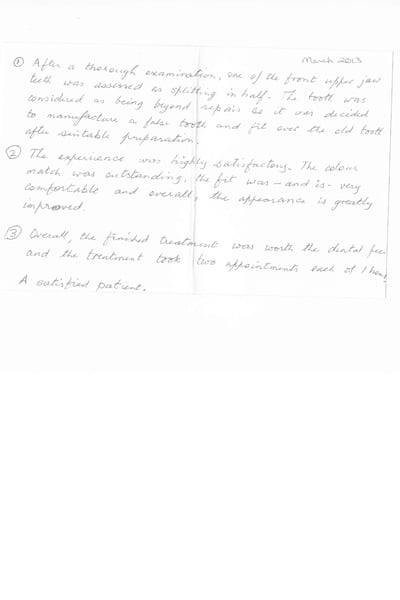 March 2013
① After a thorough examination, one of the front upper jaw
teeth was assessed as splitting in half. The tooth was
considered as being beyond repair so it was decided
to manufacture a false tooth and fit over the old tooth
after suitable preparation.
② The experience was highly satisfactory. The colour
match was outstanding, the fit was - and is - very
comfortable and overall, the appearance is greatly
improved
③ Overall, the finished treatment was worth the dental fee
and the treatment took two appointments each of 1 hour.
A satisfied patient.